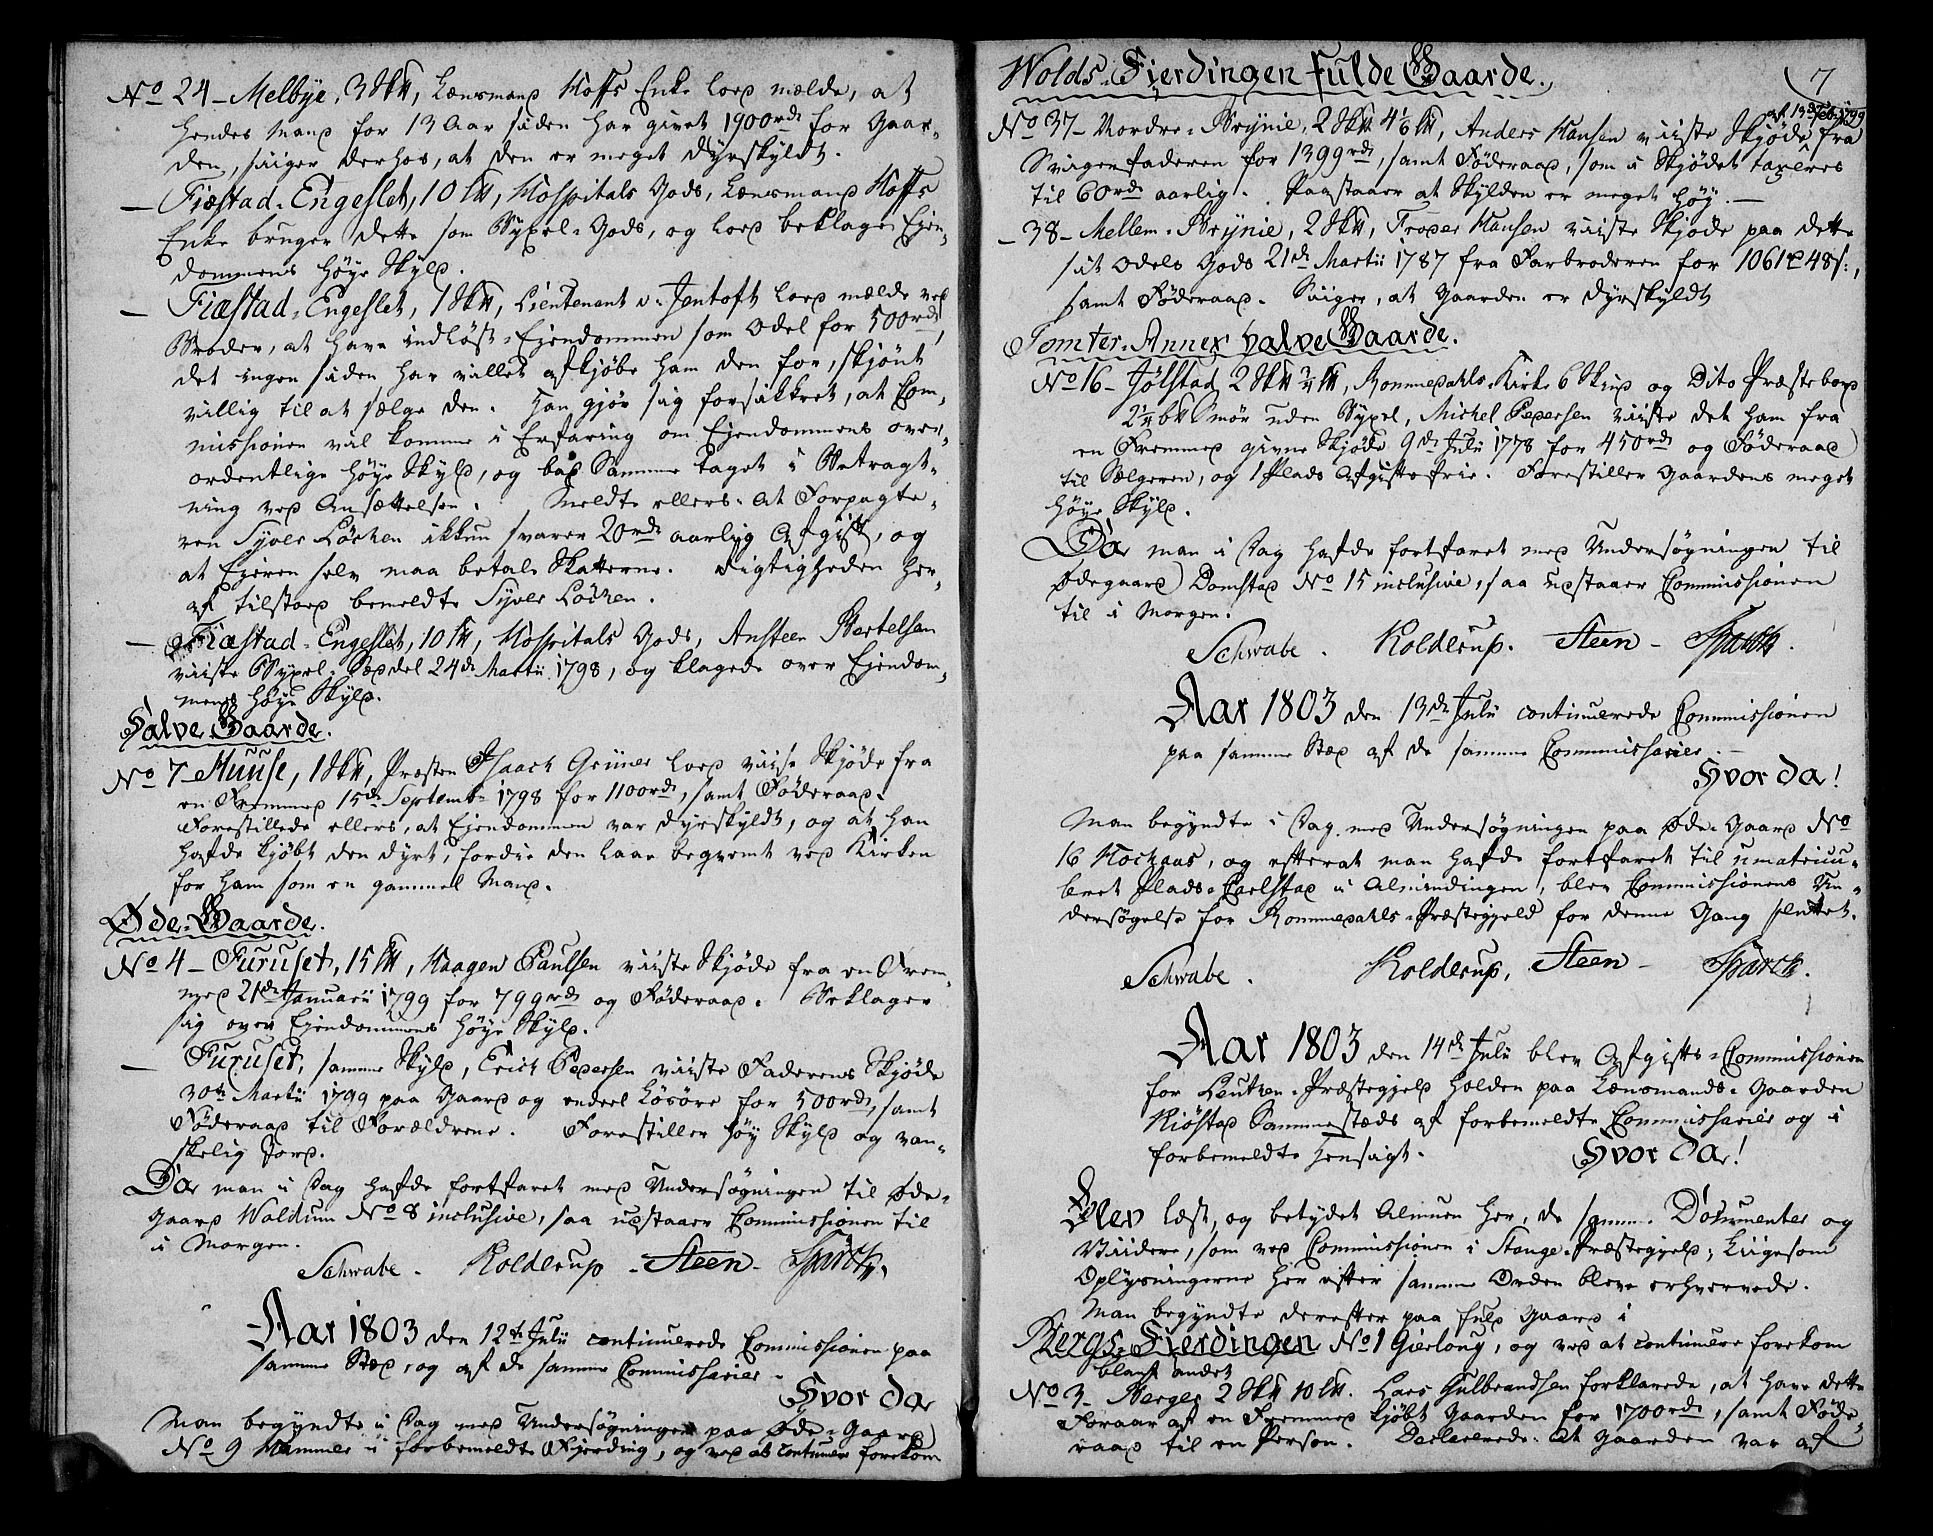 No 24 – Melbye, 3 Sk℔, Lænsmand Hoffs Enke lod mælde, at
hendes Mand for 13 Aar siden har givet 1900rd for Gaar-
den, siiger derhos, at den er meget dyrskyldt.
— Fiæstad-Engeslet, 10 ℔, Hospitals Gods, Lænsmand Hoffs
Enke bruger dette som Bÿxel-Gods, og lod beklage Ejen-
dommens høye Skyld.
— Fiæstad-Engeslet, 1 Sk℔, Lieutenant v. Jentoft lod mælde ved
Broder, at have indløst Ejendommen som Odel for 500rd,
det ingen siden har villet afkjøbe ham den for, skjønt
villig til at sælge den. Han gjør sig forsikkret, at Com-
missionen vil komme i Erfaring om Ejendommens over-
ordentlige høye Skyld, og bad Samme taget i Betragt-
ning ved Ansættelsen. Meldte ellers at Forpagte-
ren Syver Løchen ikkun svarer 20rd aarlig Afgift, og
at Ejeren selv maa betale Skatterne. Rigtigheden her-
af tilstod bemeldte Syver Løchen.
— Fiæstad-Engeslet, 10 ℔, Hospitals Gods, Ansteen Bertelsen
viiste Bÿxel-Seddel 24de Martii 1798, og klagede over Ejendom-
mens høye Skyld.
Halve Gaarde.
No 7 – Huuse, 1 Sk℔, Præsten Isaach Grüner lod viise Skjøde fra
en Fremmed 15de Septembr 1798 for 1100rd, samt Føderaad.
Forestillede ellers, at Ejendommen var dyrskyldt, og at han
hafde kjøbt den dyrt, fordie den laae beqvemt ved Kirken
for ham som en gammel Mand.
Øde-Gaarde.
No 4 – Furuset, 15 ℔, Haagen Paulsen viiste Skjøde fra en Frem-
med 21de Januarii 1799 for 799rd og Føderaad. Beklager
sig over Ejendommens høye Skyld.
— Furuset, samme Skyld, Erich Pedersen viiste Faderens Skjøde
30te Martii 1799 paa Gaard og endeel Løsøre for 500rd, samt
Føderaad til Forældrene. Forestiller høy Skyld og van-
skelig Jord.
Da man i Dag hafde fortfaret med Undersøgningen til Øde-
gaard Woldum No 8 inclusive, saa udstaaer Commissionen til
i Morgen.
Schwabe. Kolderup – Steen – Sparck.
Aar 1803 den 12te Julii continuerede Commissionen paa
samme Sted, og af de samme Commissarier.
Hvor da
Man begyndte i Dag med Undersøgningen paa Øde-Gaard
No 9 Hammer i forbemeldte Fjerding, og ved at continuere forekom
7
Wolds-Fierdingen fulde Gaarde.
af 13de Febr 1799
No 37 – Nordre-Brynie, 2 Sk℔ 4⅙ ℔, Anders Hansen viiste Skjøde fra
Svigerfaderen for 1399rd, samt Føderaad, som i Skjødet taxeres
til 60rd aarlig. Paastaaer at Skylden er meget høy. —
– 38 – Mellem-Brynie, 2 Sk℔, Troxer Hansen viiste Skjøde paa dette
sit Odels Gods 21de Martii 1787 fra Farbroderen for 1061rd 48s,
samt Føderaad. Siiger, at Gaarden er dyrskyldt
Tomter-Annex halve Gaarde.
No 16 – Jølstad 2 Sk℔ ¾ ℔, Rommedahls-Kirke 6 Skind og Dito Præstebord
2¼ b℔ Smør uden Bÿxel, Michel Pedersen viiste det ham fra
en Fremmed givne Skjøde 9de Julii 1778 for 450rd og Føderaad
til Sælgeren, og 1 Plads Afgiftsfrie. Forestiller Gaardens meget
høye Skyld.
Da man i Dag hafde fortfaret med Undersøgningen til
Ødegaard Domstad No 15 inclusive, saa udstaaer Commissionen
til i Morgen.
Schwabe. Kolderup. Steen – Sparck.
Aar 1803 den 13de Julii continuerede Commissionen
paa samme Sted af de samme Commissarier. —
Hvor da!
Man begyndte i Dag med Undersøgningen paa Øde-Gaard No
16 Kochaas, og efterat man hafde fortfaret til umatricu-
leret Plads Carlstad i Almindingen, blev Commissionens Un-
dersøgelse for Rommedahls-Præstegjeld for denne Gang sluttet.
Schwabe. Kolderup, Steen – Sparck.
Aar 1803 den 14de Julii blev Afgifts-Commissionen
for Leuten-Præstegjeld holden paa Lænsmands-Gaarden
Kiøstad Sammestæds af forbemeldte Commissarier og i
forbemeldte Hensigt. Hvor da!
Blev læst, og betydet Almuen her, de samme Documenter og
Viidere, som ved Commissionen i Stange-Præstegjeld; Liigesom
Oplysningerne her efter samme Orden bleve erhvervede.
Man begyndte derefter paa fuld Gaard i
Bergs-Fierdingen No 1 Gierlong, og ved at continuere forekom
blant andet
No 3 – Berger 2 Sk℔ 10 ℔. Lars Gulbrandsen forklarede, at have dette
Foraar af en Fremmed kjøbt Gaarden for 1700rd, samt Føde-
raad til en Person. Declarerede at Gaarden var af